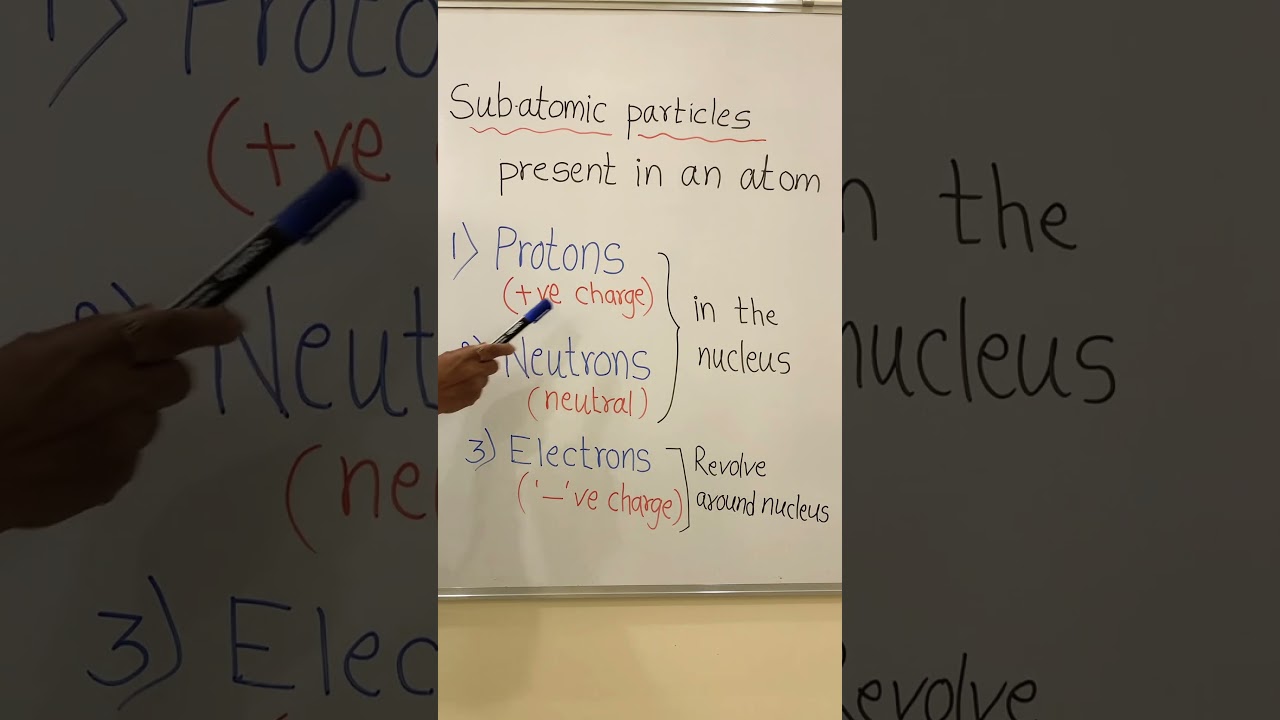 Sub-atomic particles
present in an atom
1) Protons
(+ve charge)
Neutrons
(neutral)
in the
nucleus
3) Electrons
('–'ve charge)
Revolve
around nucleus